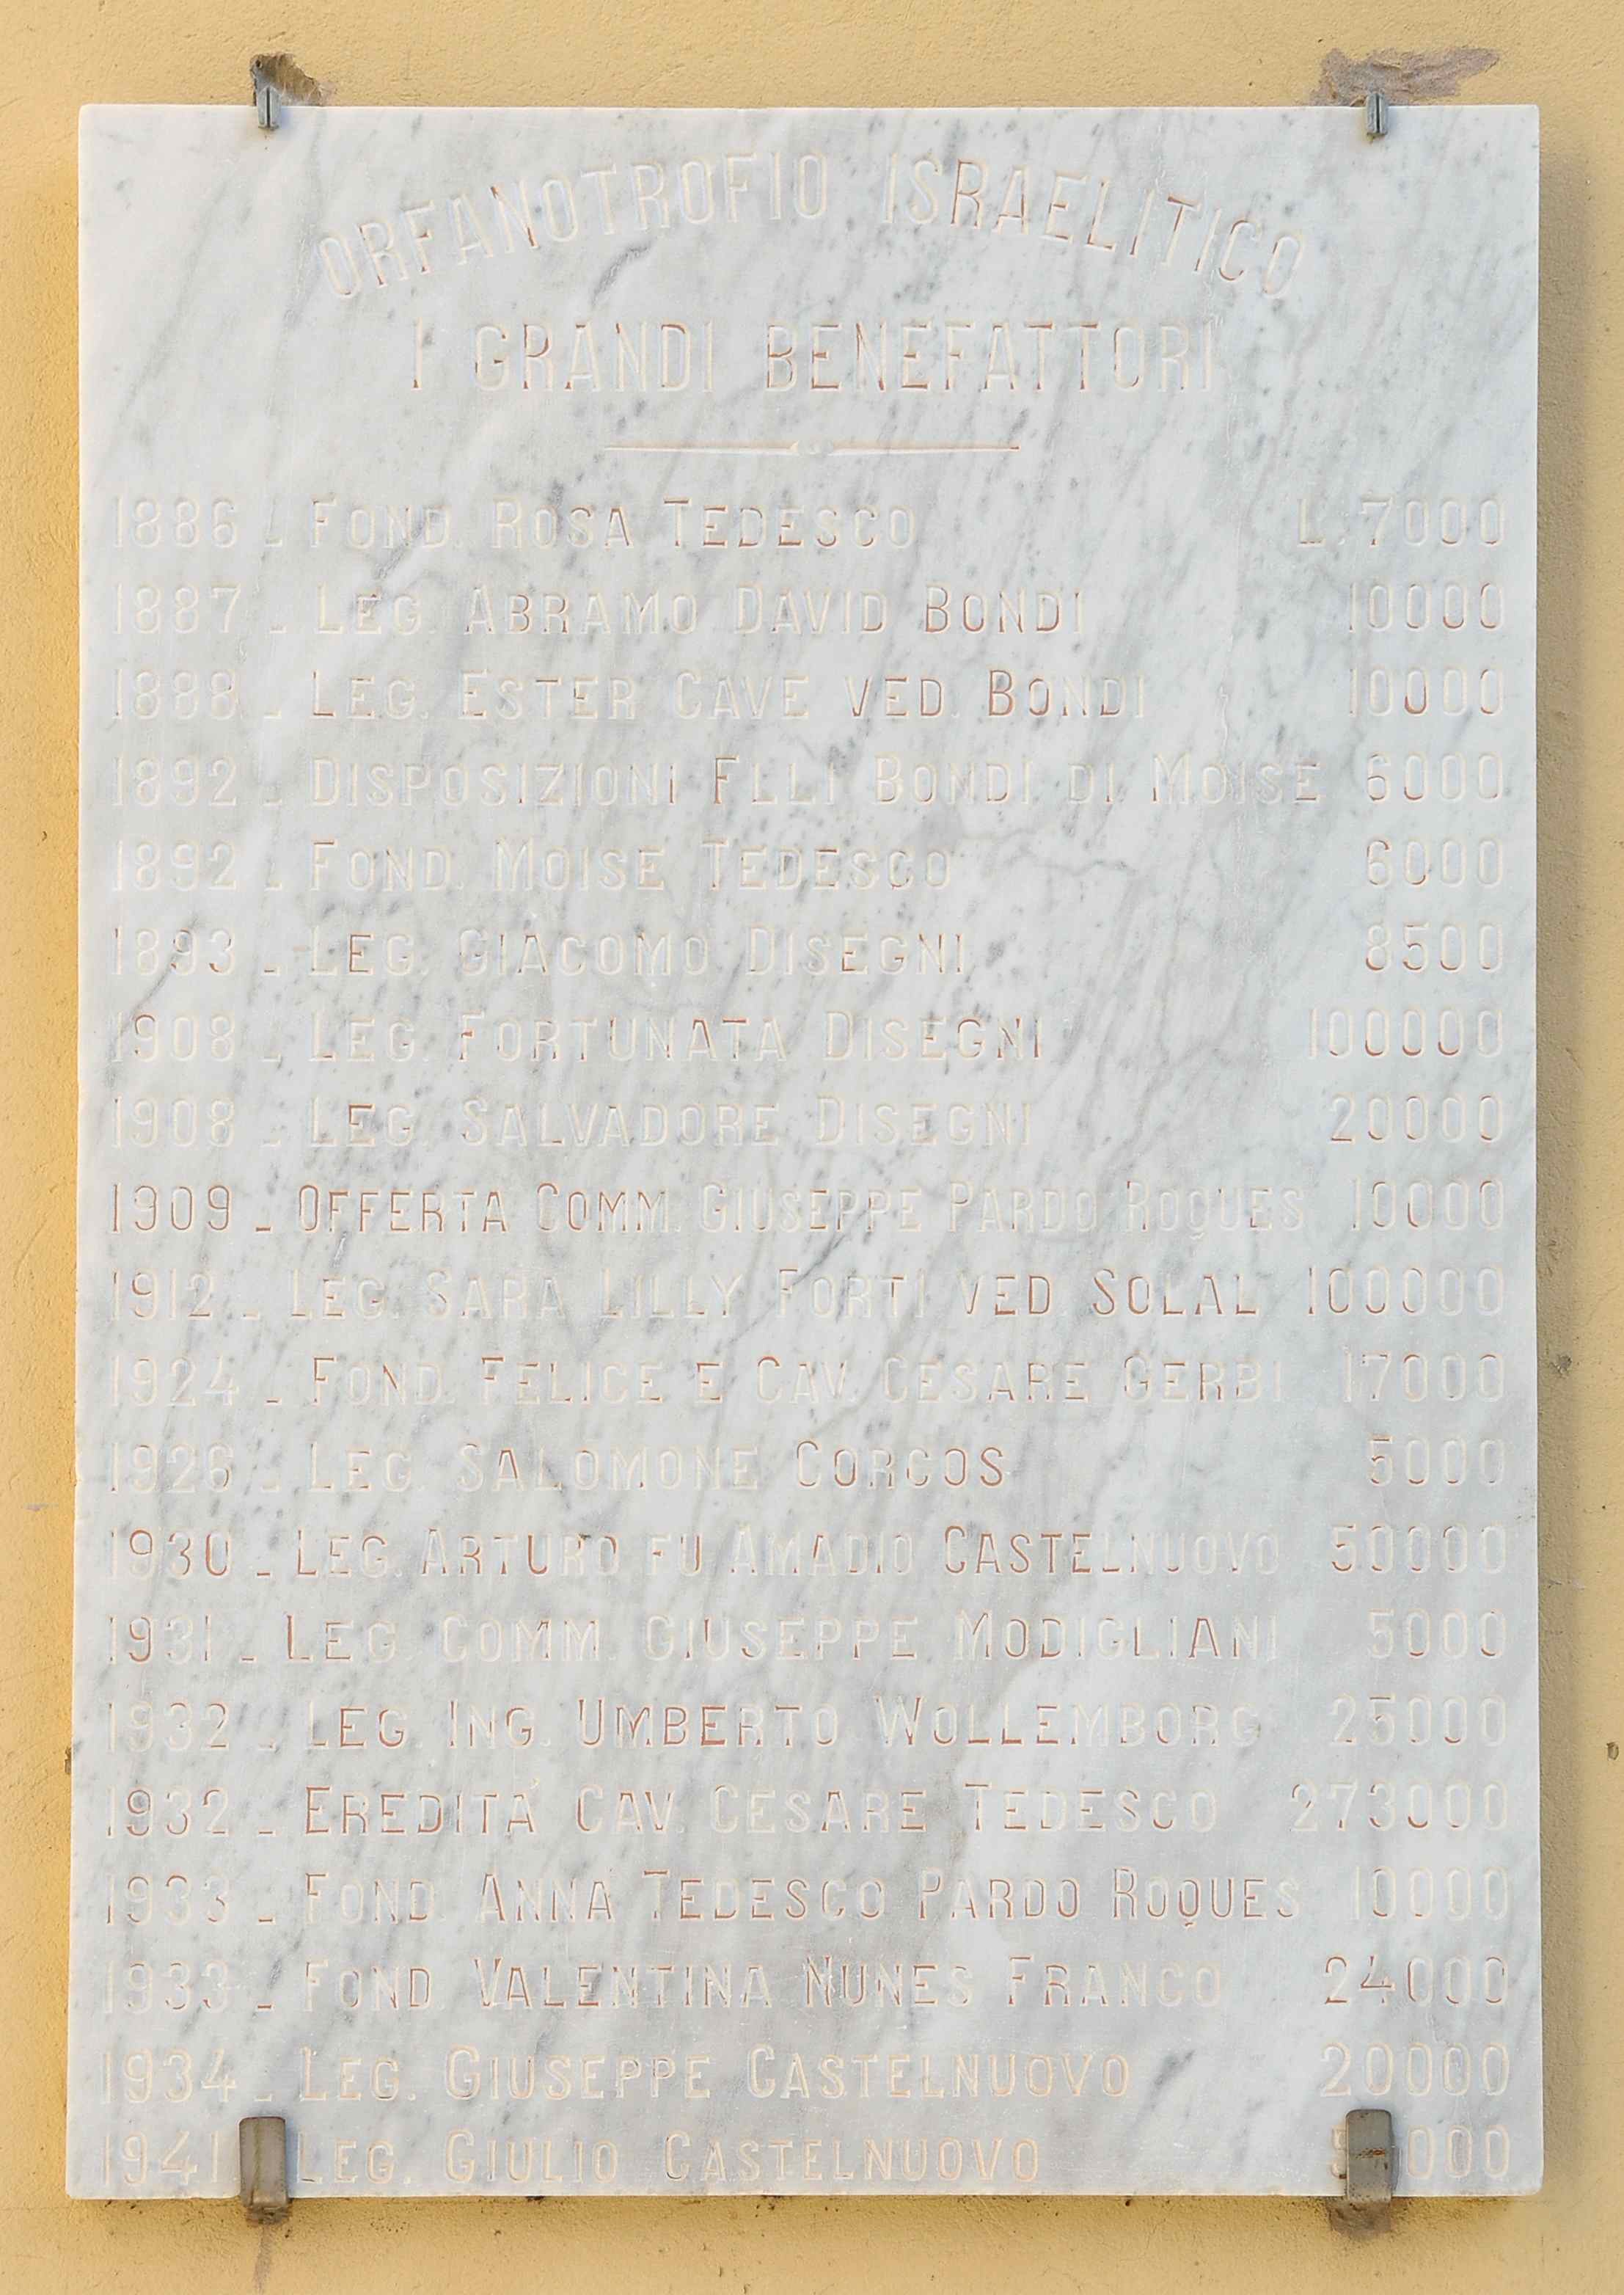 ORFANOTROFIO ISRAELITICO
I GRANDI BENEFATTORI
1886 - FOND. ROSA TEDESCO L. 7000
1887 - LEG. ABRAMO DAVID BONDI 10000
1888 - LEG. ESTER CAVE VED. BONDI 10000
1892 - DISPOSIZIONI FLLI BONDI DI MOISE 6000
1892 - FOND. MOISE TEDESCO 6000
1893 - LEG. GIACOMO DISEGNI 8500
1908 - LEG. FORTUNATA DISEGNI 100000
1908 - LEG. SALVADORE DISEGNI 20000
1909 - OFFERTA COMM. GIUSEPPE PARDO ROQUES 10000
1912 - LEG. SARA LILLY FORTI VED. SOLAL 100000
1924 - FOND. FELICE E CAV. CESARE GERBI 17000
1926 - LEG. SALOMONE CORCOS 5000
1930 - LEG. ARTURO FU AMADIO CASTELNUOVO 50000
1931 - LEG. COMM. GIUSEPPE MODIGLIANI 5000
1932 - LEG. ING. UMBERTO WOLLEMBORG 25000
1932 - EREDITÁ CAV. CESARE TEDESCO 273000
1933 - FOND. ANNA TEDESCO PARDO ROQUES 10000
1933 - FOND. VALENTINA NUNES FRANCO 24000
1934 - LEG. GIUSEPPE CASTELNUOVO 20000
1941 LEG. GIULIO CASTELNUOVO